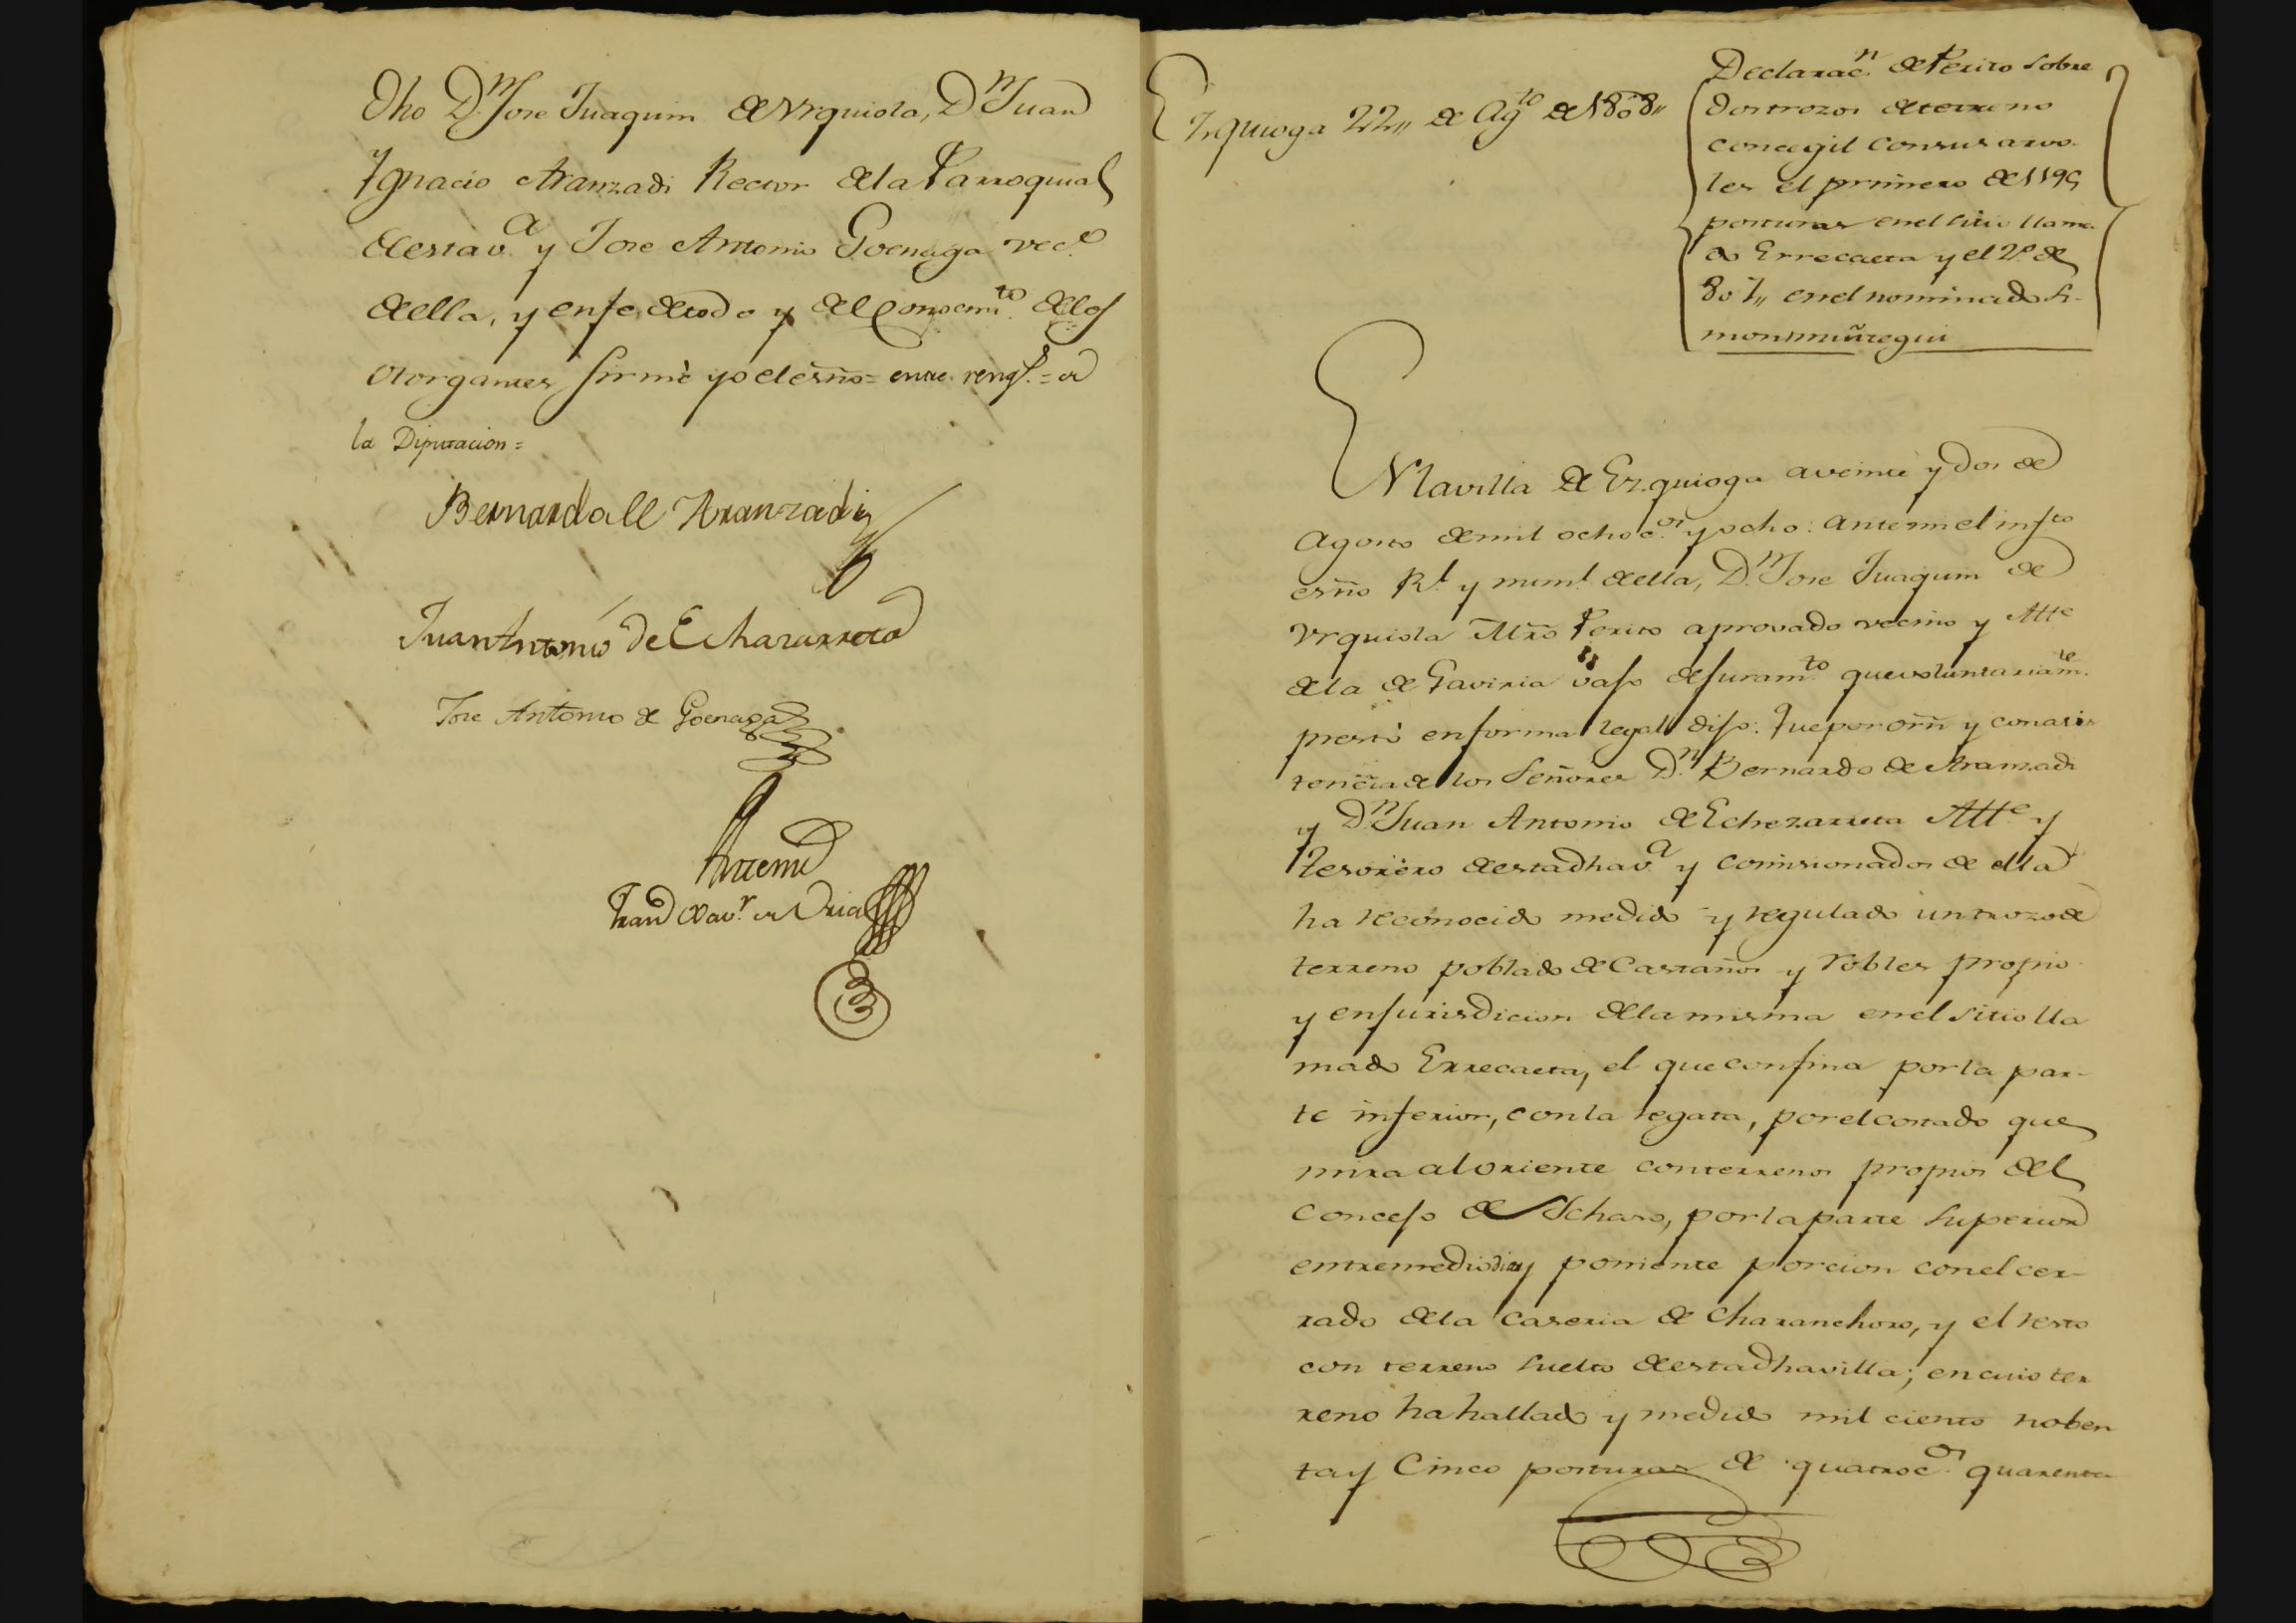 Dho Dn. Jose Juaquin de Urquiola, Dn. Juan
Ygnacio Aranzadi Rector de la Parroquial
de esta va. y Jose Antonio Goenaga veco.
de ella, y en fe de todo y del Conocimto. de los
otorgantes firmè yo el esño = entre rengs. = a
la Diputacion =
Bernardo de Aranzadi
Juan Antonio de Echazarreta
Jose Antonio de Goenaga
Ante mi
Fran Xavr. de Oria
Ezquioga 22,, de Agto de 1808,,
Declaracn. de Perito sobre
dos trozos de terreno
concegil con sus arvo-
les el primero de 1195
posturas en el sitio llama-
do Errecaeta y el 2o. de
807,, en el nominado Si-
monmuñtegui
En la villa de Ezquioga a veinte y dos de
Agosto de mil ochocos. y ocho: ante mi el infto
esño Rl. y numl. de ella, Dn. Jose Juaquin de
Urquiola Mro Perito aprovado vecino y Atte
de la de Gaviria vajo de juramto. que voluntariamte.
prestò en forma legal dijo: Que por orñ y con asis-
tencia de los Señores Dn. Bernardo de Aranzadi
y Dn. Juan Antonio de Echezarreta Alte y
tesorero de esta dha va. y comisionados de ella
ha reconocido medido y regulado un trozo de
terreno poblado de Castaños y robles propio
y en jurisdicion de la misma en el sitio lla
mado Errecaeta, el que confina por la par-
te inferior, con la regata, por el costado que
mira al oriente con terrenos propios del
Concejo de Ichaso, por la parte superior
entre medio dia y poniente porcion con el cer-
rado de la caseria de Charanchoro, y el resto
con terreno suelto de esta dha villa; en cuio ter
reno ha hallado y medido mil ciento noben
ta y Cinco posturas de quatrocos. quarenta